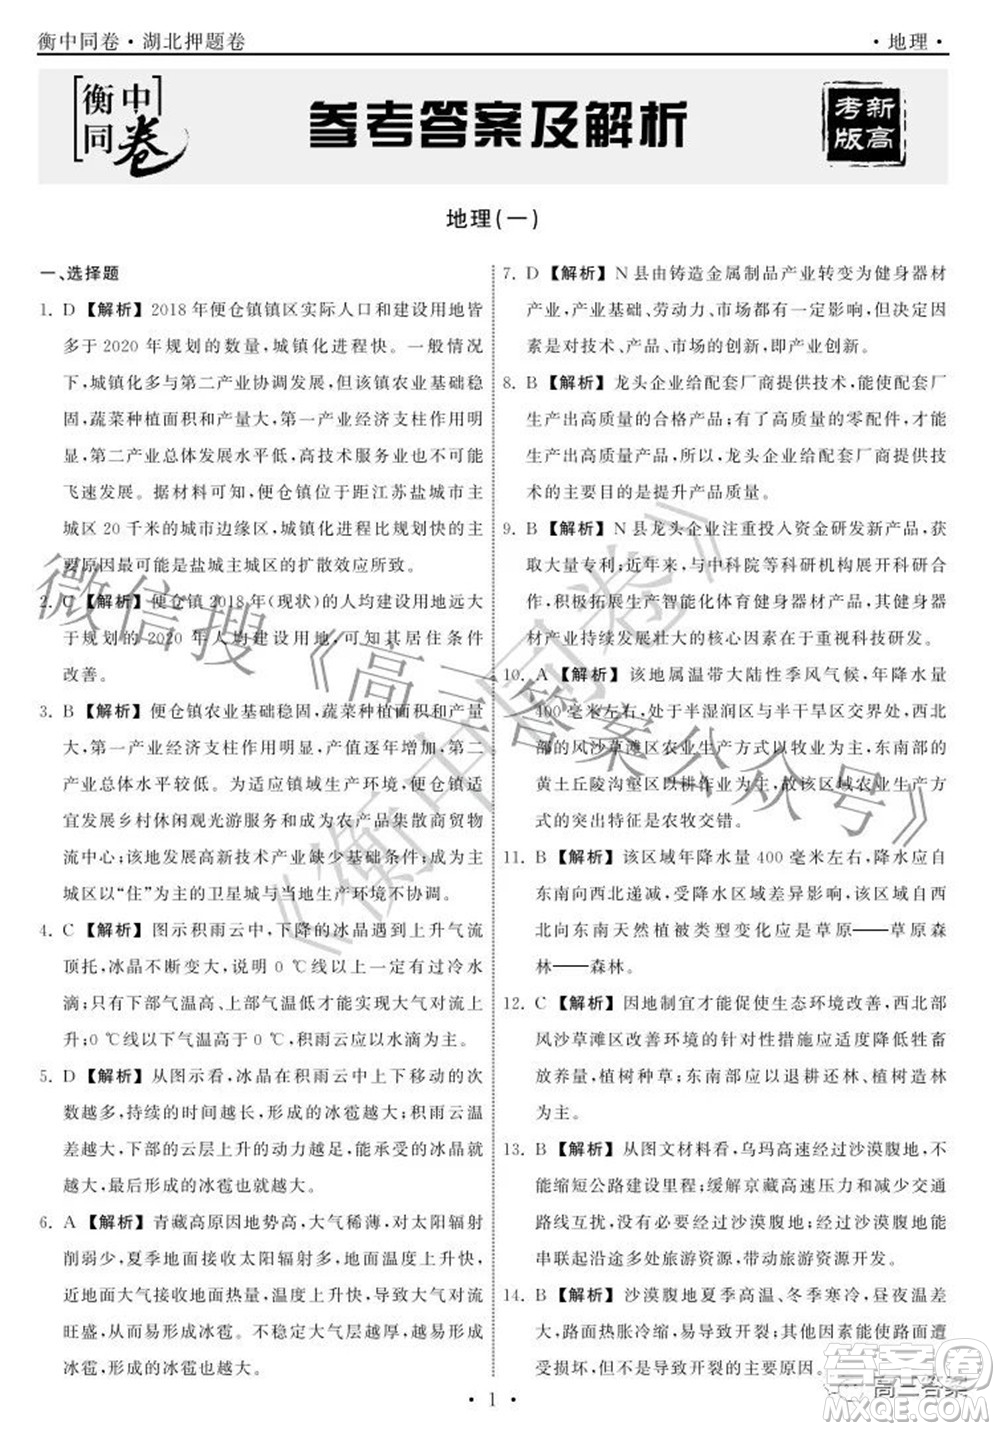 衡中同卷·湖北押题卷
·地理·
衡中
同卷
参考答案及解析
新高
考版
地理(一)
一、选择题
1. D 【解析】2018 年便仓镇镇区实际人口和建设用地皆
多于 2020 年规划的数量,城镇化进程快。一般情况
下,城镇化多与第二产业协调发展,但该镇农业基础稳
固,蔬菜种植面积和产量大,第一产业经济支柱作用明
显,第二产业总体发展水平低,高技术服务业也不可能
飞速发展。据材料可知,便仓镇位于距江苏盐城市主
城区 20 千米的城市边缘区,城镇化进程比规划快的主
要原因可能是盐城主城区的扩散效应所致。
2. C 【解析】便仓镇 2018 年(现状)的人均建设用地远大
于规划的 2020 年人均建设用地,可知其居住条件
改善。
3. B 【解析】便仓镇农业基础稳固,蔬菜种植面积和产量
大,第一产业经济支柱作用明显,产值逐年增加,第二
产业总体水平较低。为适应镇域生产环境,便仓镇适
宜发展乡村休闲观光游服务和打造成农产品集散商贸物
流中心;该地发展高新技术产业缺少基础条件;成为主
城区以“住”为主的卫星城与当地生产环境不协调。
4. C 【解析】图示积雨云中,下降的冰晶遇到上升气流
顶托,冰晶不断变大,说明 0 ℃线以上一定有过冷水
滴;只有下部气温高、上部气温低才能实现大气对流上
升;0 ℃线以下气温高于 0 ℃,积雨云应以水滴为主。
5. D 【解析】从图示看,冰晶在积雨云中上下运动的次
数越多,持续的时间越长,形成的冰雹越大;积雨云温
差越大,下部的云层上升的动力越足,能承受的冰晶越
大,最后形成的冰雹越大。
6. A 【解析】青藏高原因地势高,大气稀薄,对太阳辐射
削弱少,夏季地面接收太阳辐射多,地面升温快,导致
近地面大气接收的热量多,温度上升快,导致大气对流
旺盛,从而易形成冰雹。不稳定大气层越厚,越易形成
冰雹,形成的冰雹越大。
7. D 【解析】N 县由铸造金属制品产业转变为健身器材
产业,基础、劳动力、市场都有一定影响,但起决定作用
因素是对技术、产品、市场的创新,即产业创新。
8. B 【解析】龙头企业给配套厂商提供技术,能使配套厂
生产出高质量的合格产品;有了高质量的零配件,才能
生产出高质量的成品,所以,龙头企业给配套厂商提供技
术的主要目的是提升产品质量。
9. B 【解析】N 县龙头企业注重投入资金研发新产品,获
取大量专利;近年来,与中科院等科研机构展开科研合
作,积极拓展生产智能化体育健身器材产品,其健身器
材产业持续发展壮大的核心因素在于重视科技研发。
10. A 【解析】该地属温带大陆性季风气候,年降水量
400 毫米左右,处于半湿润区与半干旱区交界处,西北
部的风沙草滩区农业生产方式以牧业为主,东南部的
黄土丘陵沟壑区以耕作业为主,故该区域农业生产方
式的突出特征是农牧交错。
11. B 【解析】该区域年降水量 400 毫米左右,降水应自
东南向西北递减,受降水区域差异影响,该区域自西
北向东南天然植被类型变化应是草原——草原森
林——森林。
12. C 【解析】因地制宜才能促使生态环境改善,西北部
风沙草滩区改善环境的针对性措施应是降低牲畜
放养量,植树种草;东南部应以退耕还林、植树造林
为主。
13. B 【解析】从图文材料看,乌玛高速经过沙漠腹地,不
能缩短公路建设里程;缓解京藏高速压力可在其他
路线互扰,没有必要经过沙漠腹地;经过沙漠腹地能
串联起沿途多处旅游资源,带动旅游资源开发。
14. B 【解析】沙漠腹地夏季高温、冬季寒冷,昼夜温差
大,路面热胀冷缩,易导致开裂;其他因素能使路面遭
受损坏,但不是导致开裂的主要原因。
· 1 ·
微信搜《高三答案公众号》
《衡中同卷》
答案卷
高三答案